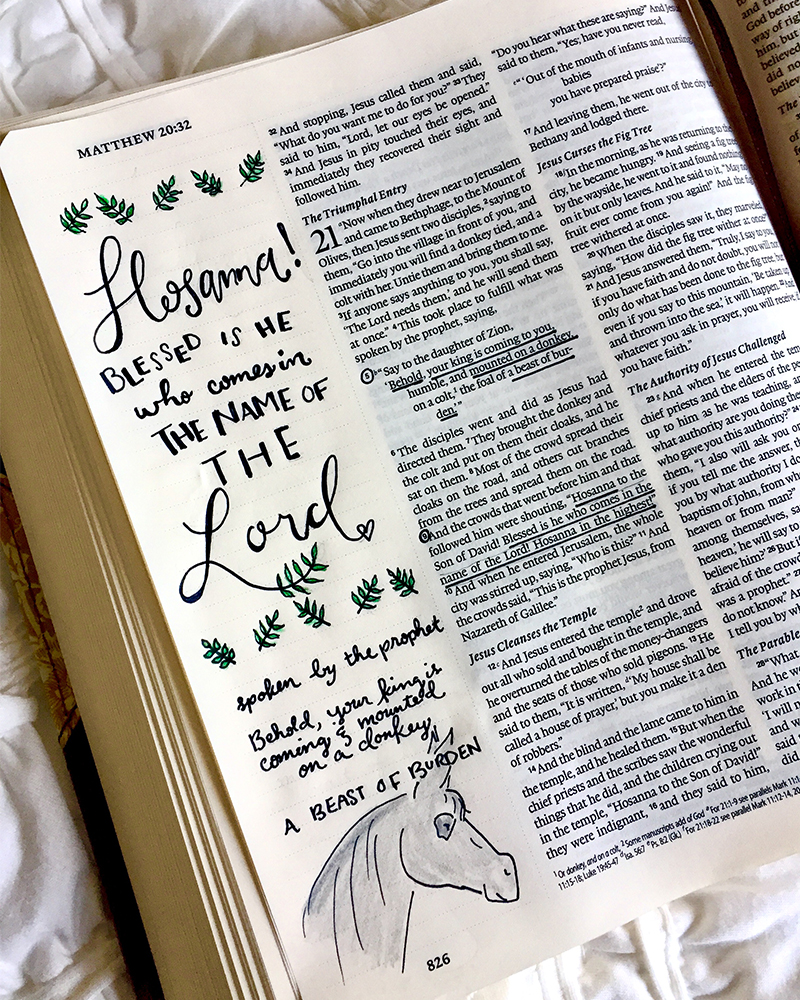 MATTHEW 20:32
Hosanna!
BLESSED IS HE
who comes in
THE NAME OF
THE
Lord
spoken by the prophet
Behold, your king is
coming & mounted
on a donkey,
A BEAST OF BURDEN
826
32 And stopping, Jesus called them and said,
"What do you want me to do for you?" 33 They
said to him, "Lord, let our eyes be opened."
34 And Jesus in pity touched their eyes, and
immediately they recovered their sight and
followed him.
The Triumphal Entry
21 "Now when they drew near to Jerusalem
and came to Bethphage, to the Mount of
Olives, then Jesus sent two disciples, 2 saying to
them, "Go into the village in front of you, and
immediately you will find a donkey tied, and a
colt with her. Untie them and bring them to me.
3 If anyone says anything to you, you shall say,
'The Lord needs them,' and he will send them
at once." 4 This took place to fulfill what was
spoken by the prophet, saying,
5 "Say to the daughter of Zion,
'Behold, your king is coming to you,
humble, and mounted on a donkey,
on a colt, the foal of a beast of bur-
den.'"
6 The disciples went and did as Jesus had
directed them. 7 They brought the donkey and
the colt and put on them their cloaks, and he
sat on them. 8 Most of the crowd spread their
cloaks on the road, and others cut branches
from the trees and spread them on the road.
9 And the crowds that went before him and that
followed him were shouting, "Hosanna to the
Son of David! Blessed is he who comes in the
name of the Lord! Hosanna in the highest!"
10 And when he entered Jerusalem, the whole
city was stirred up, saying, "Who is this?" 11 And
the crowds said, "This is the prophet Jesus, from
Nazareth of Galilee."
Jesus Cleanses the Temple
12 And Jesus entered the temple and drove
out all who sold and bought in the temple, and
he overturned the tables of the money-changers
and the seats of those who sold pigeons. 13 He
said to them, "It is written, 'My house shall be
called a house of prayer,' but you make it a den
of robbers."
14 And the blind and the lame came to him in
the temple, and he healed them. 15 But when the
chief priests and the scribes saw the wonderful
things that he did, and the children crying out
in the temple, "Hosanna to the Son of David!"
they were indignant, 16 and they said to him,
"Do you hear what these are saying?" And Jesus
said to them, "Yes; have you never read,
"'Out of the mouth of infants and nursing
babies
you have prepared praise'?"
17 And leaving them, he went out of the city to
Bethany and lodged there.
Jesus Curses the Fig Tree
18 In the morning, as he was returning to the
city, he became hungry. 19 And seeing a fig tree
by the wayside, he went to it and found nothing
on it but only leaves. And he said to it, "May no
fruit ever come from you again!" And the fig
tree withered at once.
20 When the disciples saw it, they marveled,
saying, "How did the fig tree wither at once?"
21 And Jesus answered them, "Truly, I say to you,
if you have faith and do not doubt, you will not
only do what has been done to the fig tree, but
even if you say to this mountain, 'Be taken up
and thrown into the sea,' it will happen. 22 And
whatever you ask in prayer, you will receive, if
you have faith."
The Authority of Jesus Challenged
23 And when he entered the temple
chief priests and the elders of the
up to him as he was teaching, and
what authority are you doing these
who gave you this authority?" 24
them, "I also will ask you
if you tell me the answer, th
you by what authority I do
baptism of John, from wh
heaven or from man?"
among themselves, say
heaven,' he will say to
believe him?' 26 But if
afraid of the crowd
was a prophet." 27
do not know." And
I tell you by what
The Parable
28 "What
And he w
work in
'I will n
and w
said
did
1 Or donkey, and on a colt, 2 Some manuscripts add of God
11:15-18; Luke 19:45-47